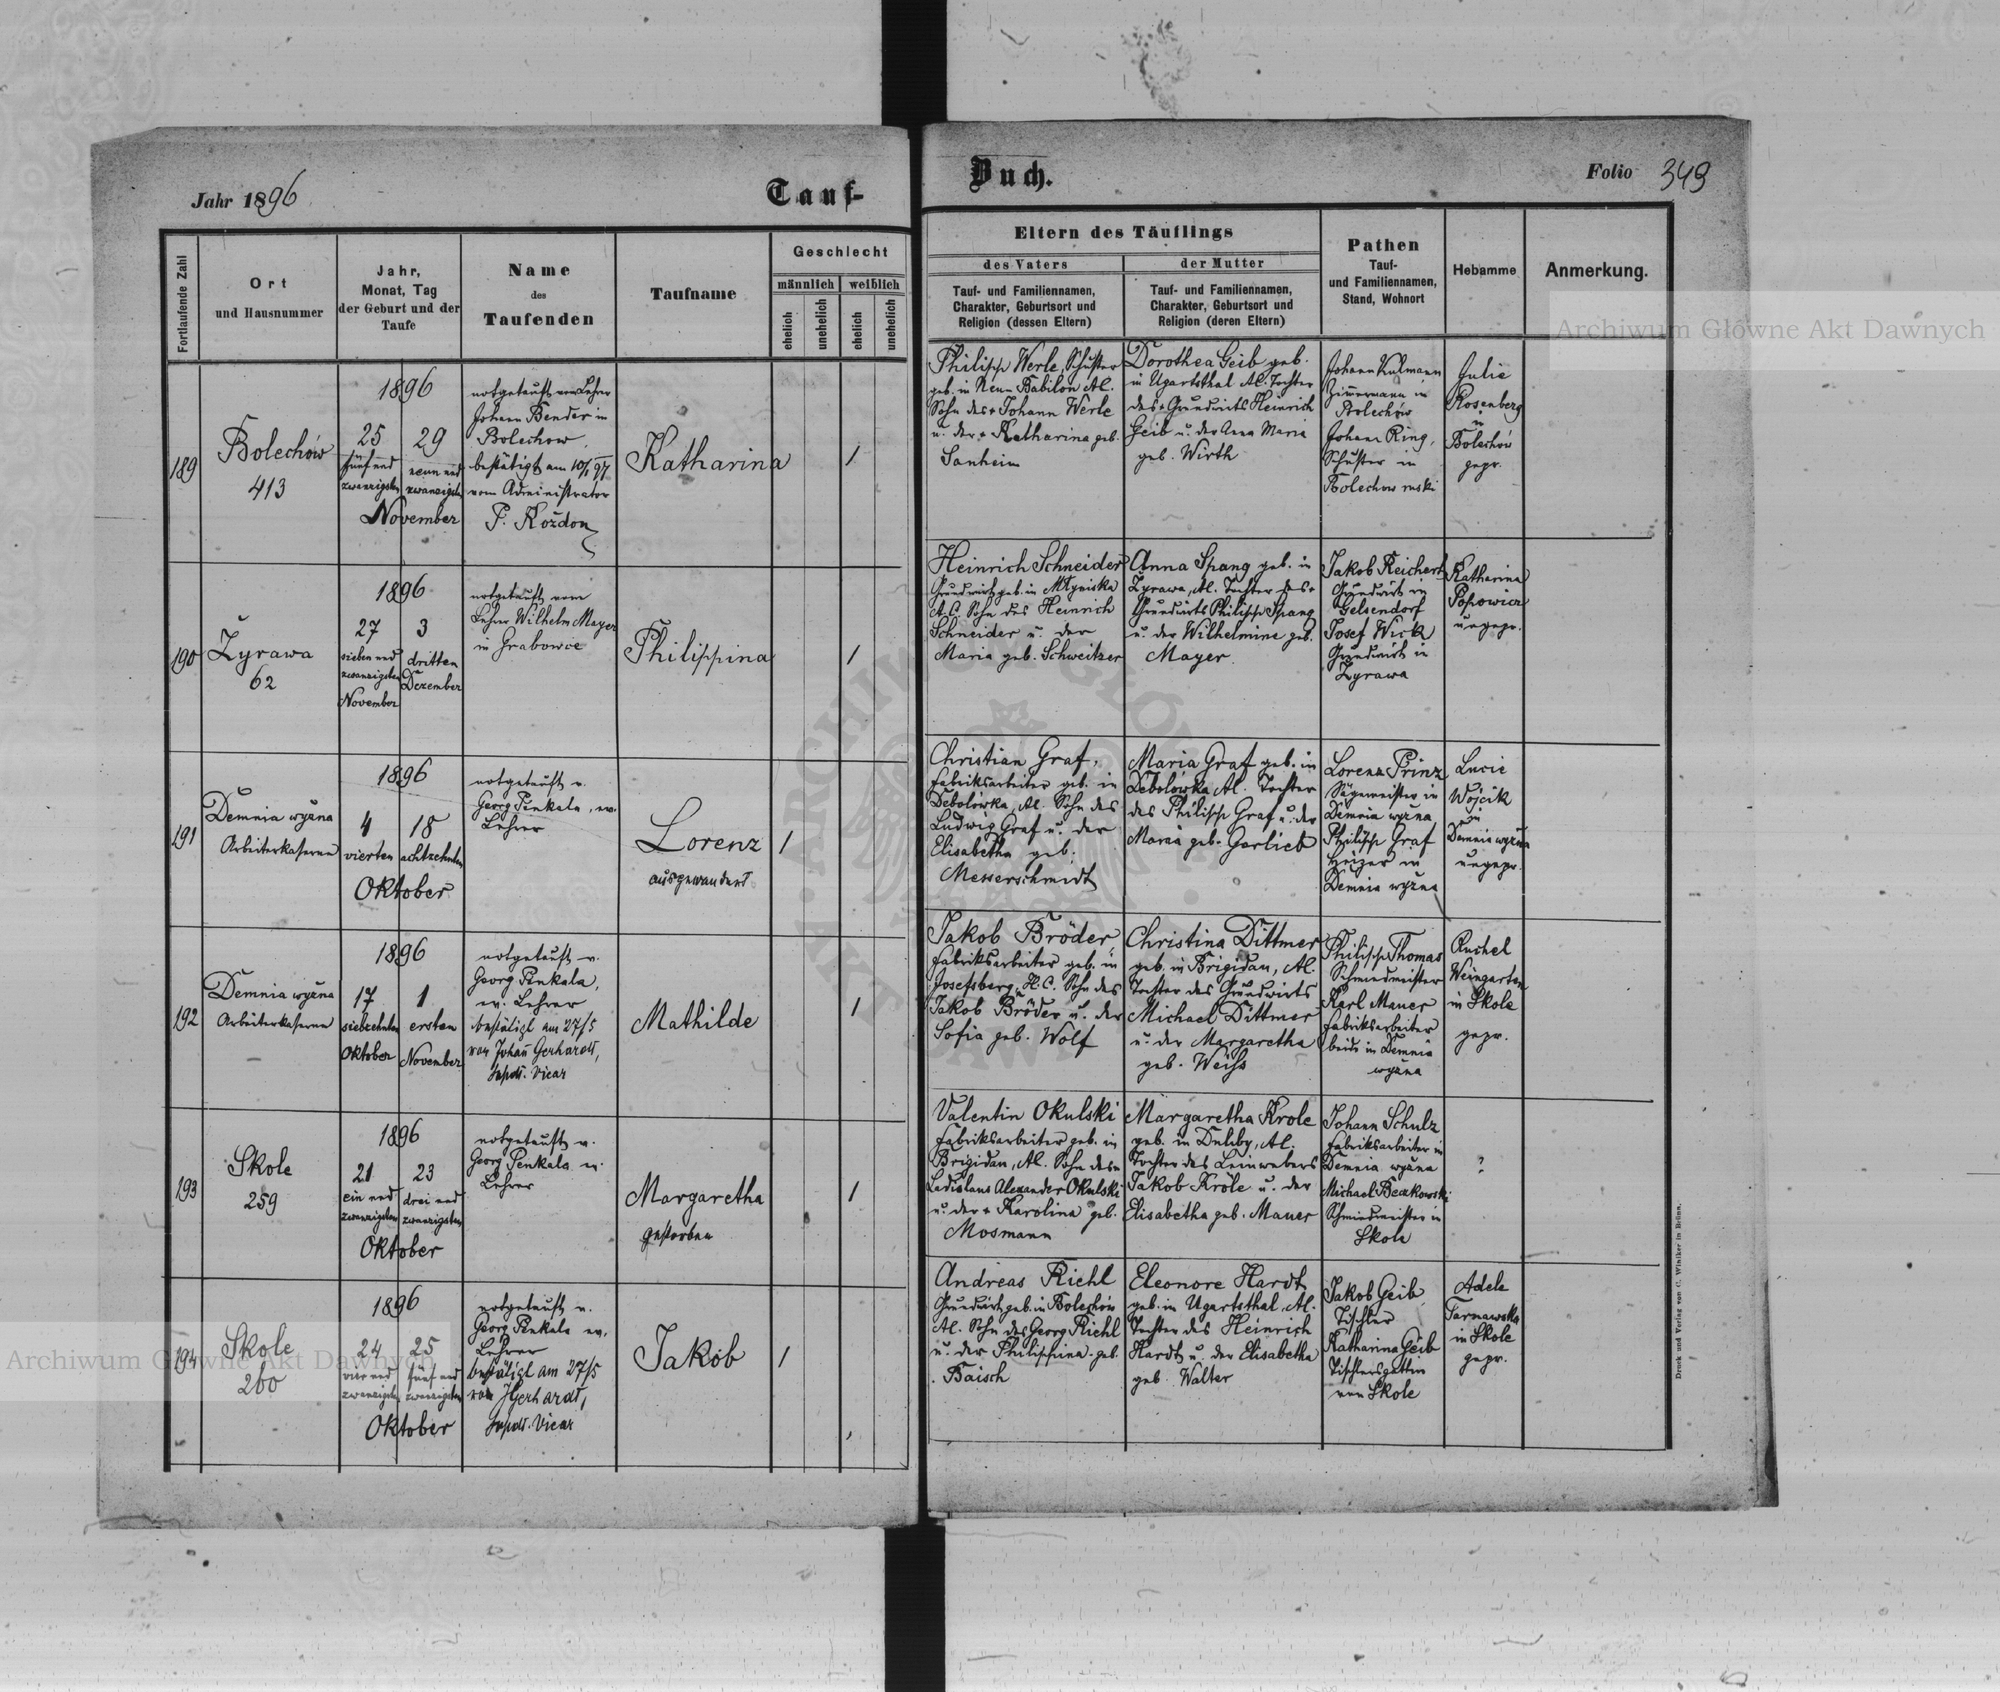 Jahr 1896
Tauf-
Buch.
Folio 349
Fortlaufende Zahl
Ort
und Hausnummer
Jahr,
Monat, Tag
der Geburt und der
Taufe
Name
des
Taufenden
Taufname
Geschlecht
männlich
weiblich
ehelich
unehelich
ehelich
unehelich
Eltern des Täuflings
des Vaters
Tauf- und Familiennamen,
Charakter, Geburtsort und
Religion (dessen Eltern)
der Mutter
Tauf- und Familiennamen,
Charakter, Geburtsort und
Religion (deren Eltern)
Pathen
Tauf-
und Familiennamen,
Stand, Wohnort
Hebamme
Anmerkung.
189
Bolechów
413
1896
25
fünf und
zwanzigsten
29
neun und
zwanzigsten
November
notgetauft vom Lehrer
Johann Bender in
Bolechow
bestätigt am 10/1 97
vom Administrator
P. Kożdon
Katharina
1
Philipp Werle, Schuster
geb. in Neu-Babilon Al.
Sohn des + Johann Werle
u. der + Katharina geb.
Sanheim
Dorothea Geib geb.
in Ugartsthal Al. Tochter
des + Grundwirts Heinrich
Geib u. der Anna Maria
geb. Wirth
Johann Kulmann
Zimmermann in
Bolechów
Johann Ring,
Schuster in
Bolechow ruski
Julie
Rosenberg
in
Bolechów
gepr.
190
Żyrawa
62
1896
27
sieben und
zwanzigsten
November
3
dritten
Dezember
notgetauft vom
Lehrer Wilhelm Mayer
in Grabowce
Philippina
1
Heinrich Schneider
Grundwirt geb. in Młyniska
A.C. Sohn des Heinrich
Schneider u. der
Maria geb. Schweitzer
Anna Spang geb. in
Żyrawa, Al. Tochter des +
Grundwirts Philipp Spang
u. der Wilhelmine geb.
Mayer.
Jakob Reichert
Grundwirt in
Gelsendorf
Josef Wick
Grundwirt in
Żyrawa
Katharina
Popowicz
ungepr.
191
Demnia wyżna
Arbeiterkaserne
1896
4
vierten
18
achtzehnten
Oktober
notgetauft v.
Georg Penkala, ev.
Lehrer
Lorenz
ausgewandert
1
Christian Graf,
Fabriksarbeiter geb. in
Debolówka, Al. Sohn des
Ludwig Graf u. der
Elisabetha geb.
Messerschmidt
Maria Graf geb. in
Debolówka Al. Tochter
des Philipp Graf u. der
Maria geb. Garlich
Lorenz Prinz
Sägemeister in
Demnia wyżna
Philipp Graf
Heizer in
Demnia wyżna
Lucie
Wojcik
in
Demnia wyżna
ungepr.
192
Demnia wyżna
Arbeiterkaserne
1896
17
siebzehnten
Oktober
1
ersten
November
notgetauft v.
Georg Penkala,
ev. Lehrer
bestätigt am 27/5
von Johann Gerhardt,
Supdt. Vicar
Mathilde
1
Jakob Bröder,
Fabriksarbeiter geb. in
Josefsberg, H.C. Sohn des
Jakob Bröder u. der
Sofia geb. Wolf
Christina Dittmer
geb. in Brigidau, Al.
Tochter des Grundwirts
Michael Dittmer
u. der Margaretha
geb. Weiss
Philipp Thomas
Schmiedmeister
Karl Mauer
Fabriksarbeiter
beide in Demnia
wyżna
Ruchel
Weingarten
in Skole
gepr.
193
Skole
259
1896
21
ein und
zwanzigsten
23
drei und
zwanzigsten
Oktober
notgetauft v.
Georg Penkala ev.
Lehrer
Margaretha
gestorben
1
Valentin Okulski
Fabriksarbeiter geb. in
Brigidau, Al. Sohn des +
Ladislaus Alexander Okulski
u. der + Karolina geb.
Mosmann
Margaretha Krole
geb. in Duliby, Al.
Tochter des Leinwebers
Jakob Kröle u. der
Elisabetha geb. Mauer
Johann Schulz
Fabriksarbeiter in
Demnia wyżna
Michael Beckowski
Schmiedmeister in
Skole
?
194
Skole
260
1896
24
vier und
zwanzigsten
25
fünf und
zwanzigsten
Oktober
notgetauft v.
Georg Penkala ev.
Lehrer
bestätigt am 27/5
von J Gerhardt,
Supdt. Vicar
Jakob
1
Andreas Riehl
Grundwirt geb. in Bolechów
Al. Sohn des Georg Riehl
u. der Philippina geb.
Baisch
Eleonore Hardt
geb. in Ugartsthal, Al.
Tochter des Heinrich
Hardt u. der Elisabetha
geb. Walter
Jakob Geib
Tischler
Katharina Geib
Tischlersgattin
von Skole
Adele
Tarnawska
in Skole
gepr.
Druck und Verlag von C. Winiker in Brünn.
Archiwum Główne Akt Dawnych
Archiwum Główne Akt Dawnych